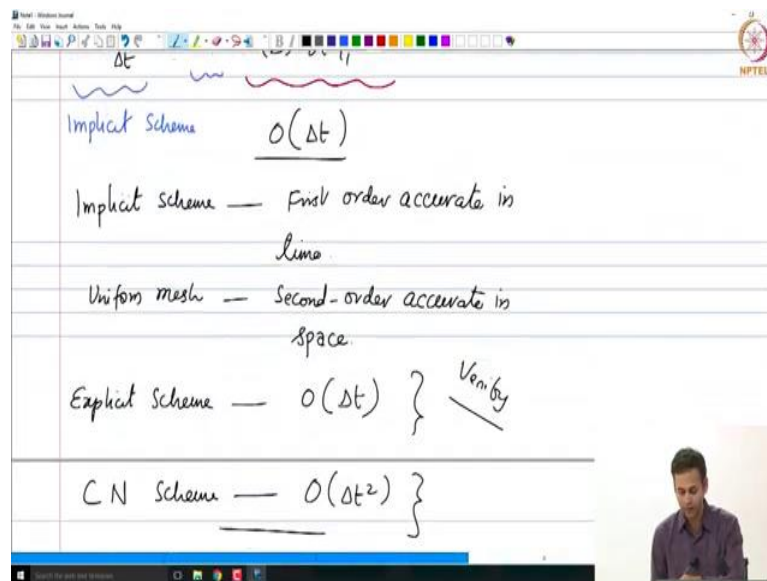 Note1 - Windows Journal
File Edit View Insert Actions Tools Help
NPTEL
Δt
Implicit Scheme O(Δt)
Implicit scheme — First order accurate in
time.
Uniform mesh — Second-order accurate in
space.
Explicit Scheme — O(Δt) } Verify
CN Scheme — O(Δt²) }